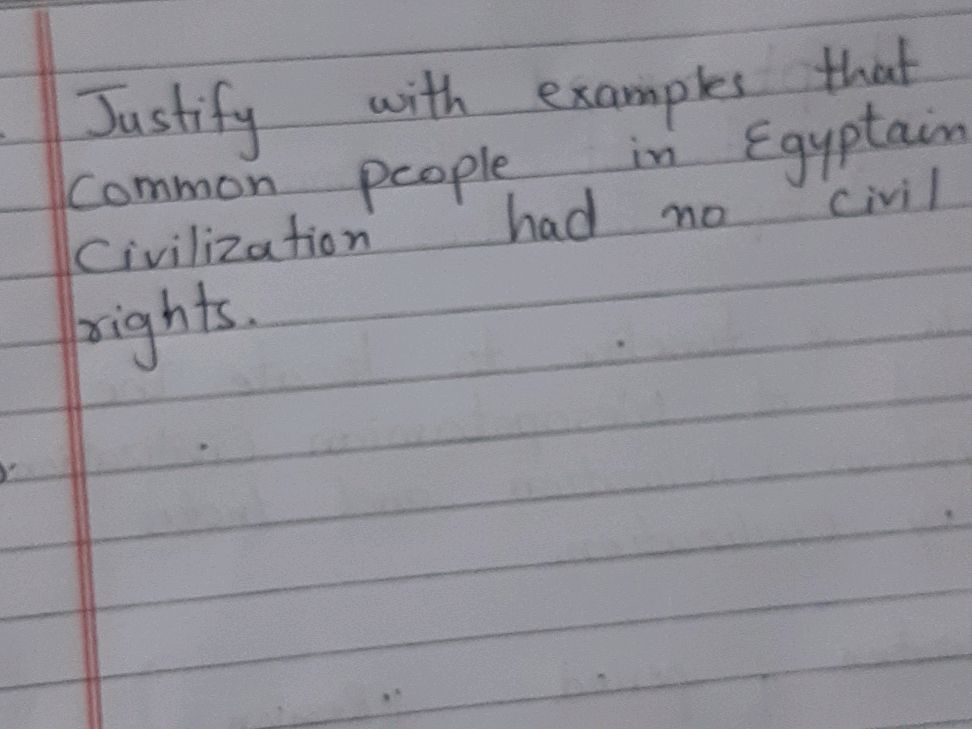 Justify with examples that
Common people in Egyptain
Civilization had no civil
rights.